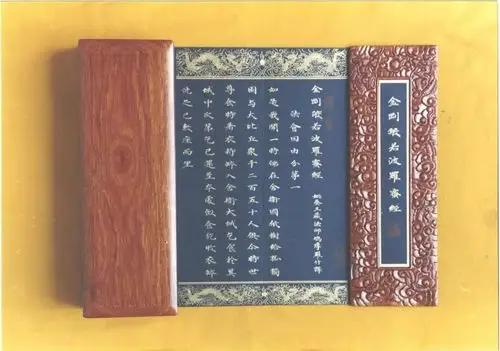 金剛般若波羅蜜經
金剛般若波羅蜜經
姚秦三藏法師鳩摩羅什譯
法會因由分第一
如是我聞一時佛在舍衛國祇樹給孤獨
園與大比丘眾千二百五十人俱爾時世
尊食時著衣持鉢入舍衛大城乞食於其
城中次第乞已還至本處飯食訖收衣鉢
洗足已敷座而坐